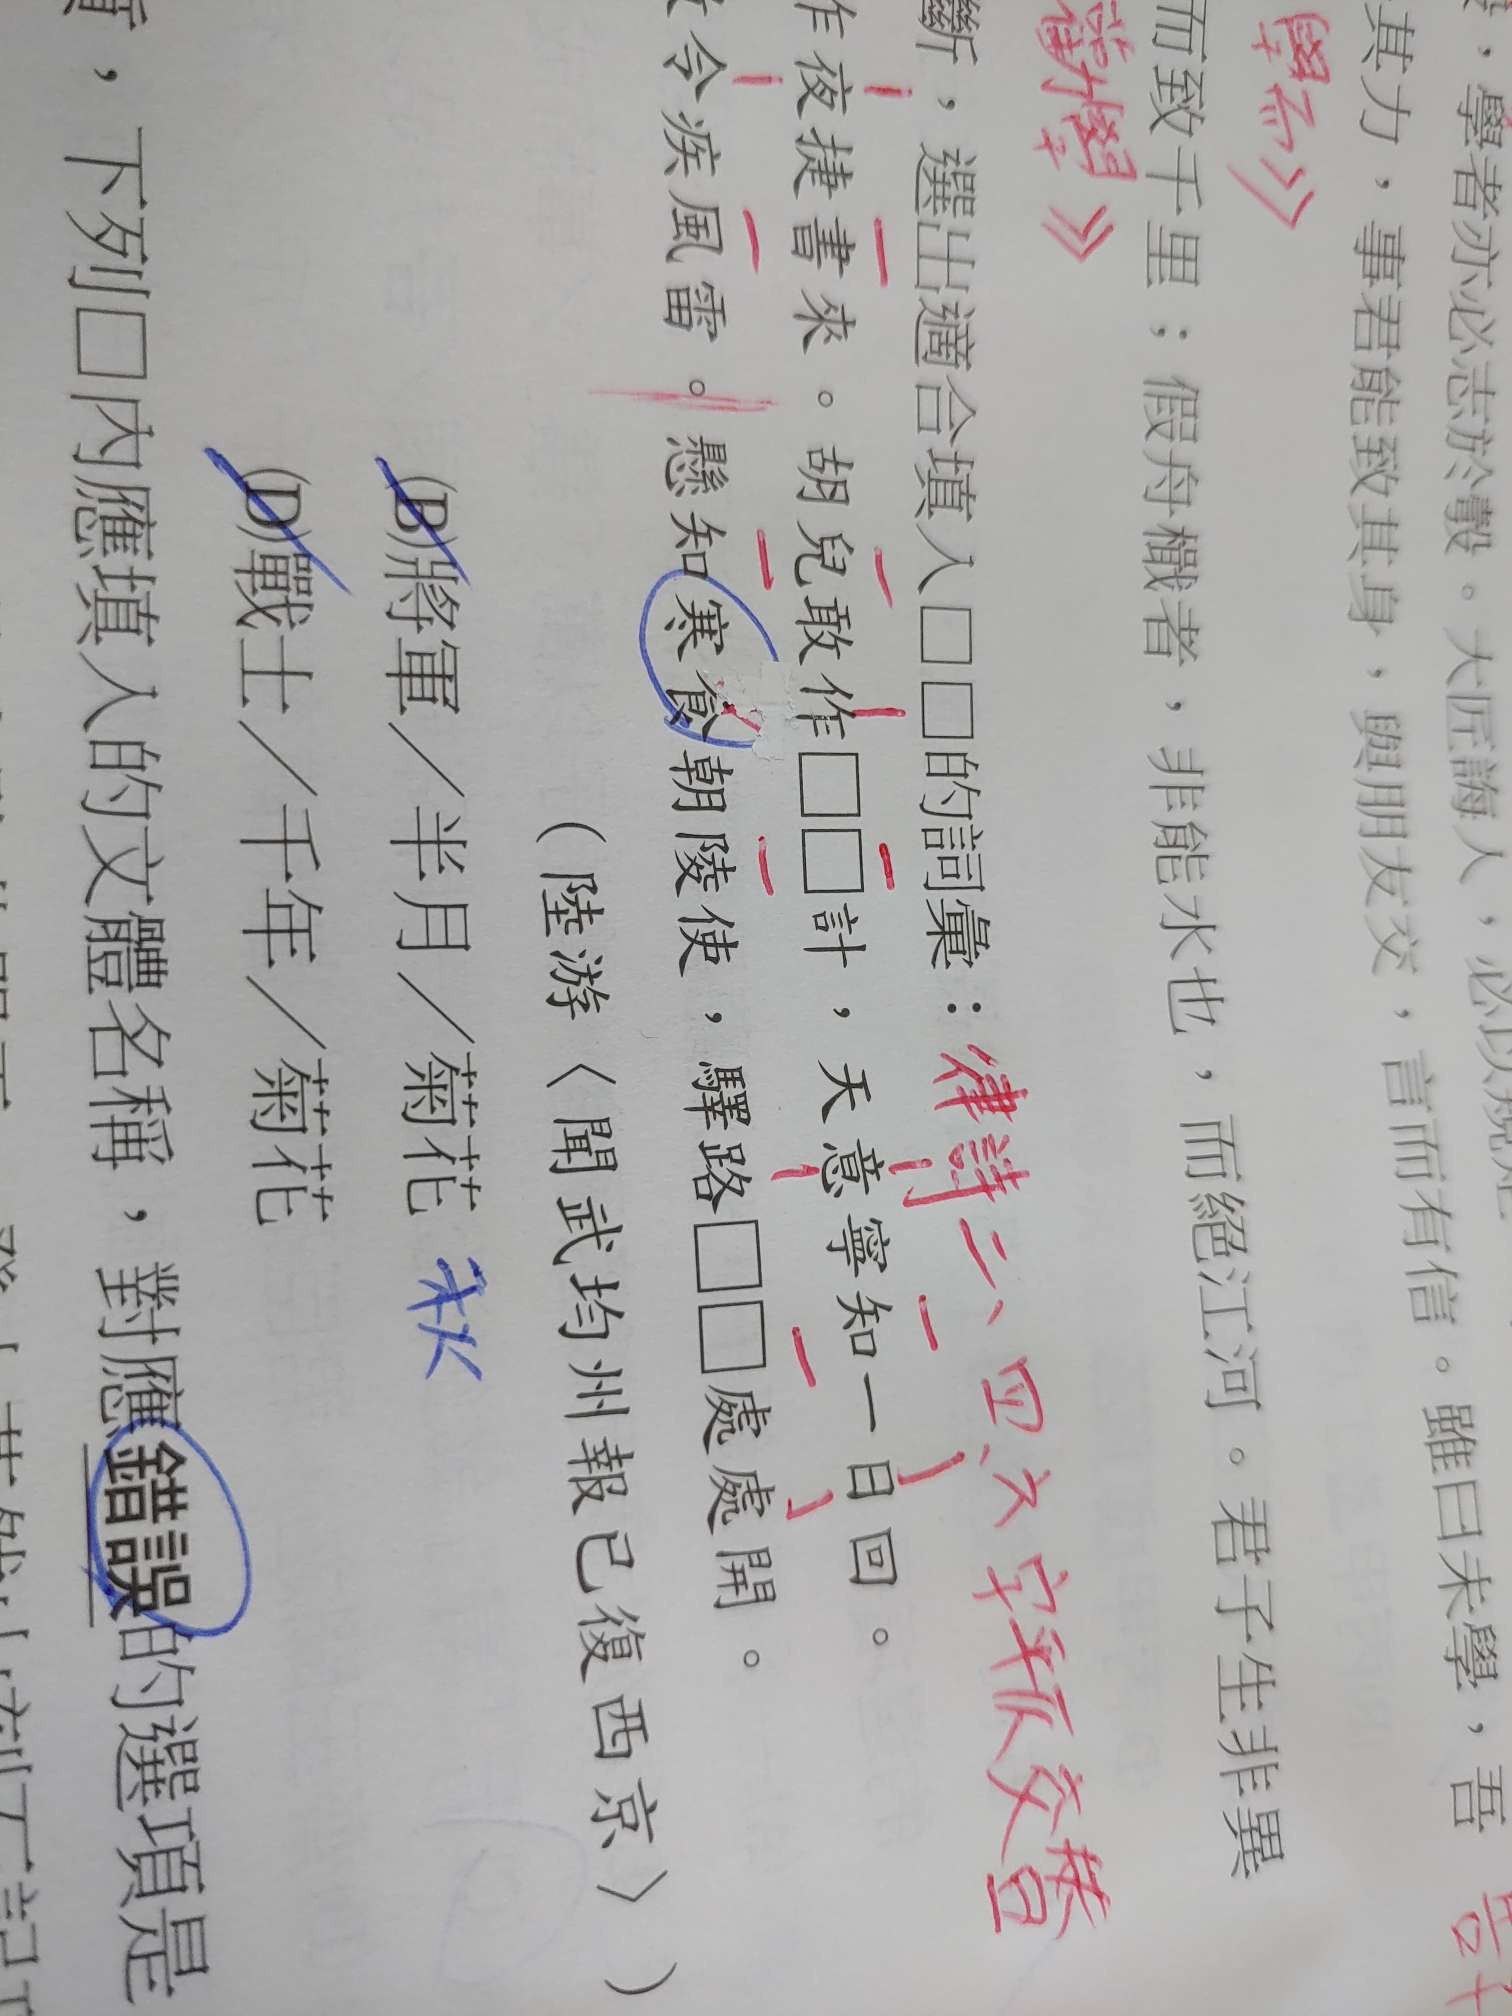 ，學者亦必志於彀。大匠誨人，必以規矩
學而》
其力，事君能致其身，與朋友交，言而有信。雖曰未學，吾
而致千里；假舟檝者，非能水也，而絕江河。君子生非異
勸學》
斷，選出適合填入□□的詞彙：律詩二、四、六字平仄交替
昨夜捷書來。胡兒敢作□□計，天意寧知一日回。
令疾風雷。懸知寒食朝陵使，驛路□□處處開。
（陸游〈聞武均州報已復西京〉）
(B)將軍／半月／菊花 秋
(D)戰士／千年／菊花
，下列□內應填入的文體名稱，對應錯誤的選項是